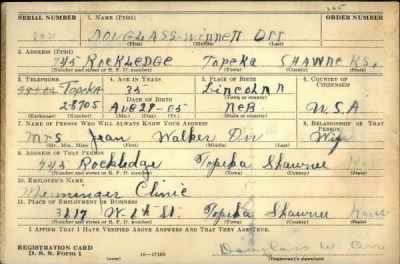 SERIAL NUMBER 1. NAME (Print) ORDER NUMBER
DOUGLASS-Winnett Orr
(First) (Middle) (Last)
2. ADDRESS (Print)
745 Rockledge Topeka Shawnee KS.
(Number and street or R. F. D. number) (Town) (County) (State)
3. TELEPHONE 4. AGE IN YEARS 5. PLACE OF BIRTH 6. COUNTRY OF CITIZENSHIP
Topeka 35 Lincoln
DATE OF BIRTH
2-8705 Aug 28-05 Neb U.S.A
(Exchange) (Number) (Mo.) (Day) (Yr.) (State or country)
7. NAME OF PERSON WHO WILL ALWAYS KNOW YOUR ADDRESS 8. RELATIONSHIP OF THAT PERSON
Mrs Jean Walker Orr Wife
(Mr., Mrs., Miss) (First) (Middle) (Last)
9. ADDRESS OF THAT PERSON
745 Rockledge Topeka Shawnee
(Number and street or R. F. D. number) (Town) (County) (State)
10. EMPLOYER'S NAME
Menninger Clinic
11. PLACE OF EMPLOYMENT OR BUSINESS
3617 W. 6th St. Topeka Shawnee Kans
(Number and street or R. F. D. number) (Town) (County) (State)
I AFFIRM THAT I HAVE VERIFIED ABOVE ANSWERS AND THAT THEY ARE TRUE.
REGISTRATION CARD
D. S. S. Form 1 16-17105 Douglass W. Orr
(Registrant's signature)